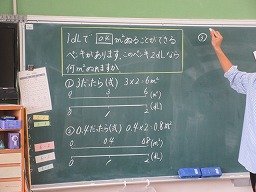 1dLで □.□ m²ぬることができる
ペンキがあります。このペンキ2dLなら
何m²ぬれますか
① 3だったら(式) 3×2=6m²
0 3 6 (m²)
0 1 2 (dL)
② 0.4だったら(式) 0.4×2=0.8m²
0 0.4 0.8 (m²)
0 1 2 (dL)
③